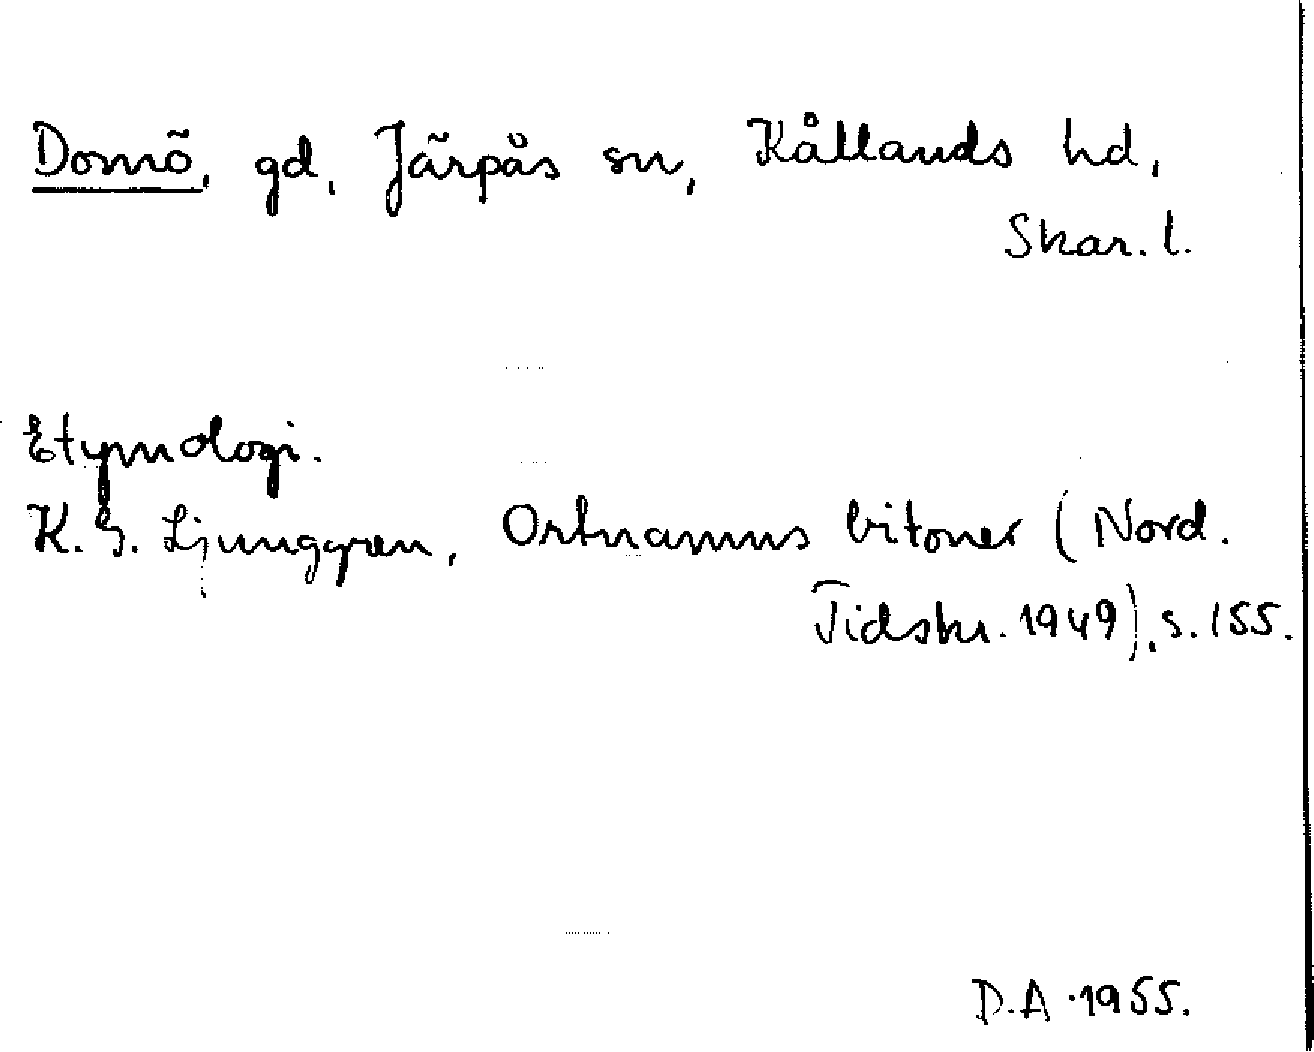 Domö, gd, Järpås sn, Kållands hd,
Skar. l.
Etymologi.
K. G. Ljunggren, Ortnamns bitoner (Nord.
Tidskr. 1949), s. 155.
D.A. 1955.